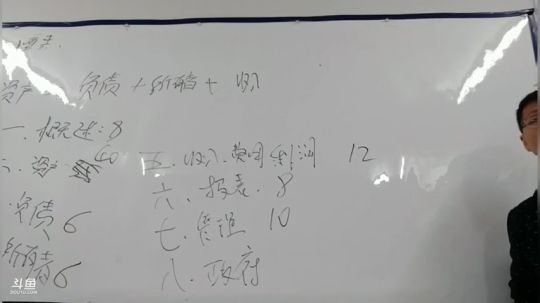 资产 负债 + 所有者 + 收入
一. 概述: 8
二. 资产 40
负债 6
所有者 6
五. 收入. 费用 利润 12
六. 报表. 8
七. 管理 10
八. 政府
斗鱼
DOUYU.COM